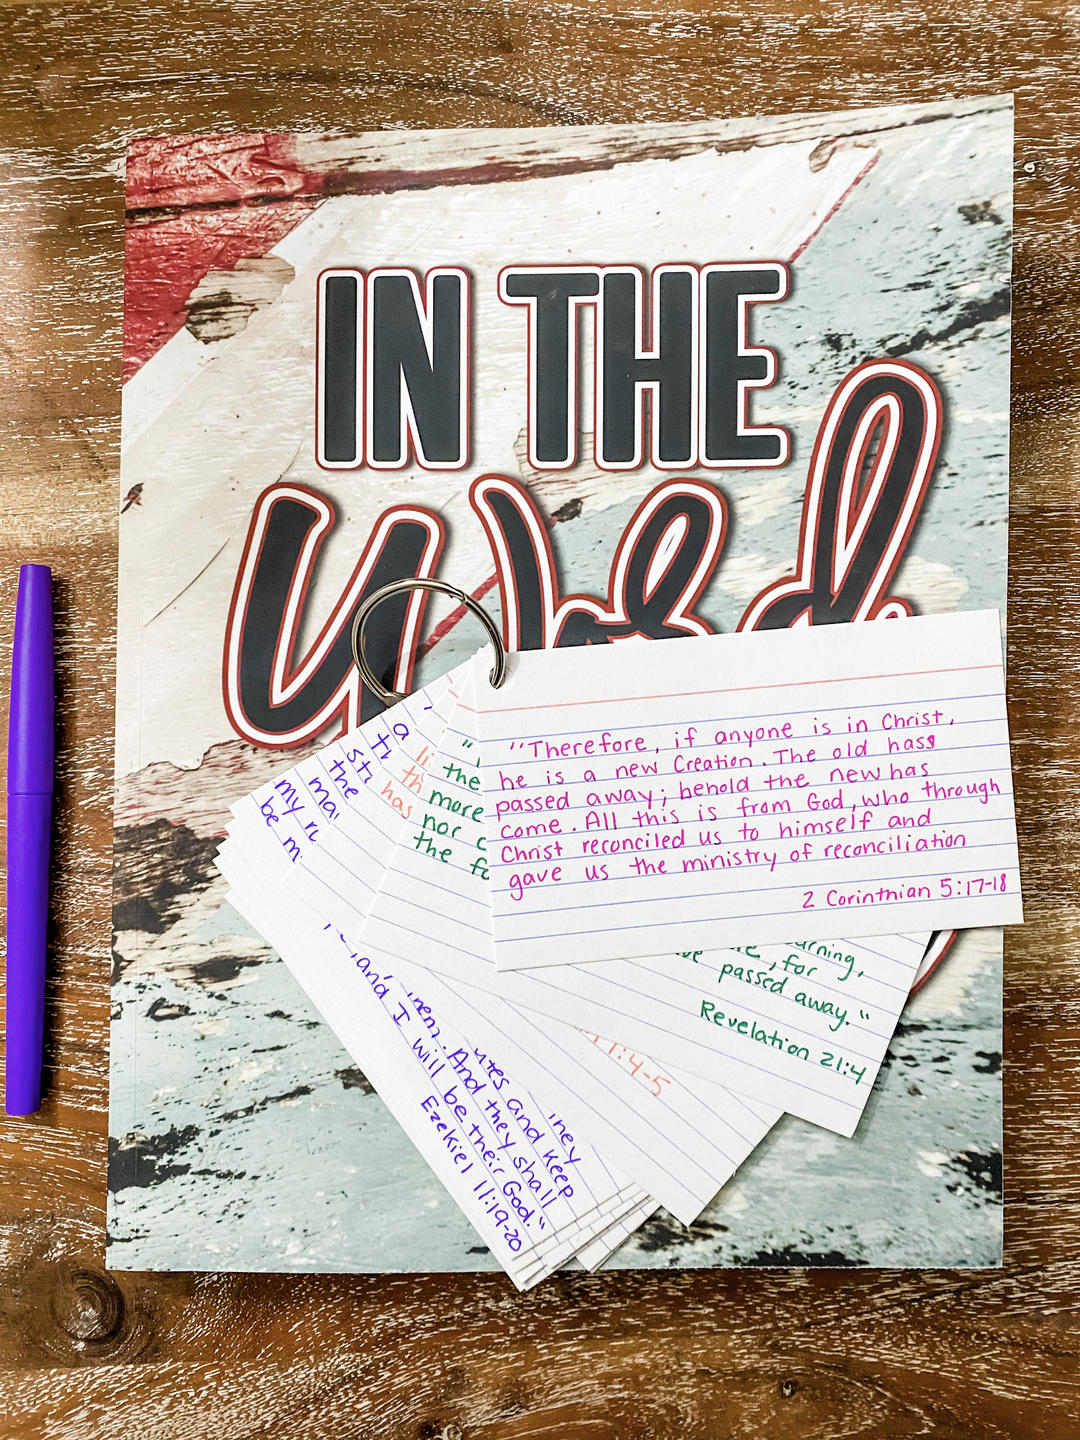 IN THE
Word
"Therefore, if anyone is in Christ,
he is a new Creation. The old hass
passed away; behold the new has
come. All this is from God, who through
Christ reconciled us to himself and
gave us the ministry of reconciliation
2 Corinthian 5:17-18
"
the
more
nor
the
for
passed away."
Revelation 21:4
has
11:4-5
a
the
my
be
and
And they shall
and keep
and I will be their God."
Ezekiel 11:19-20